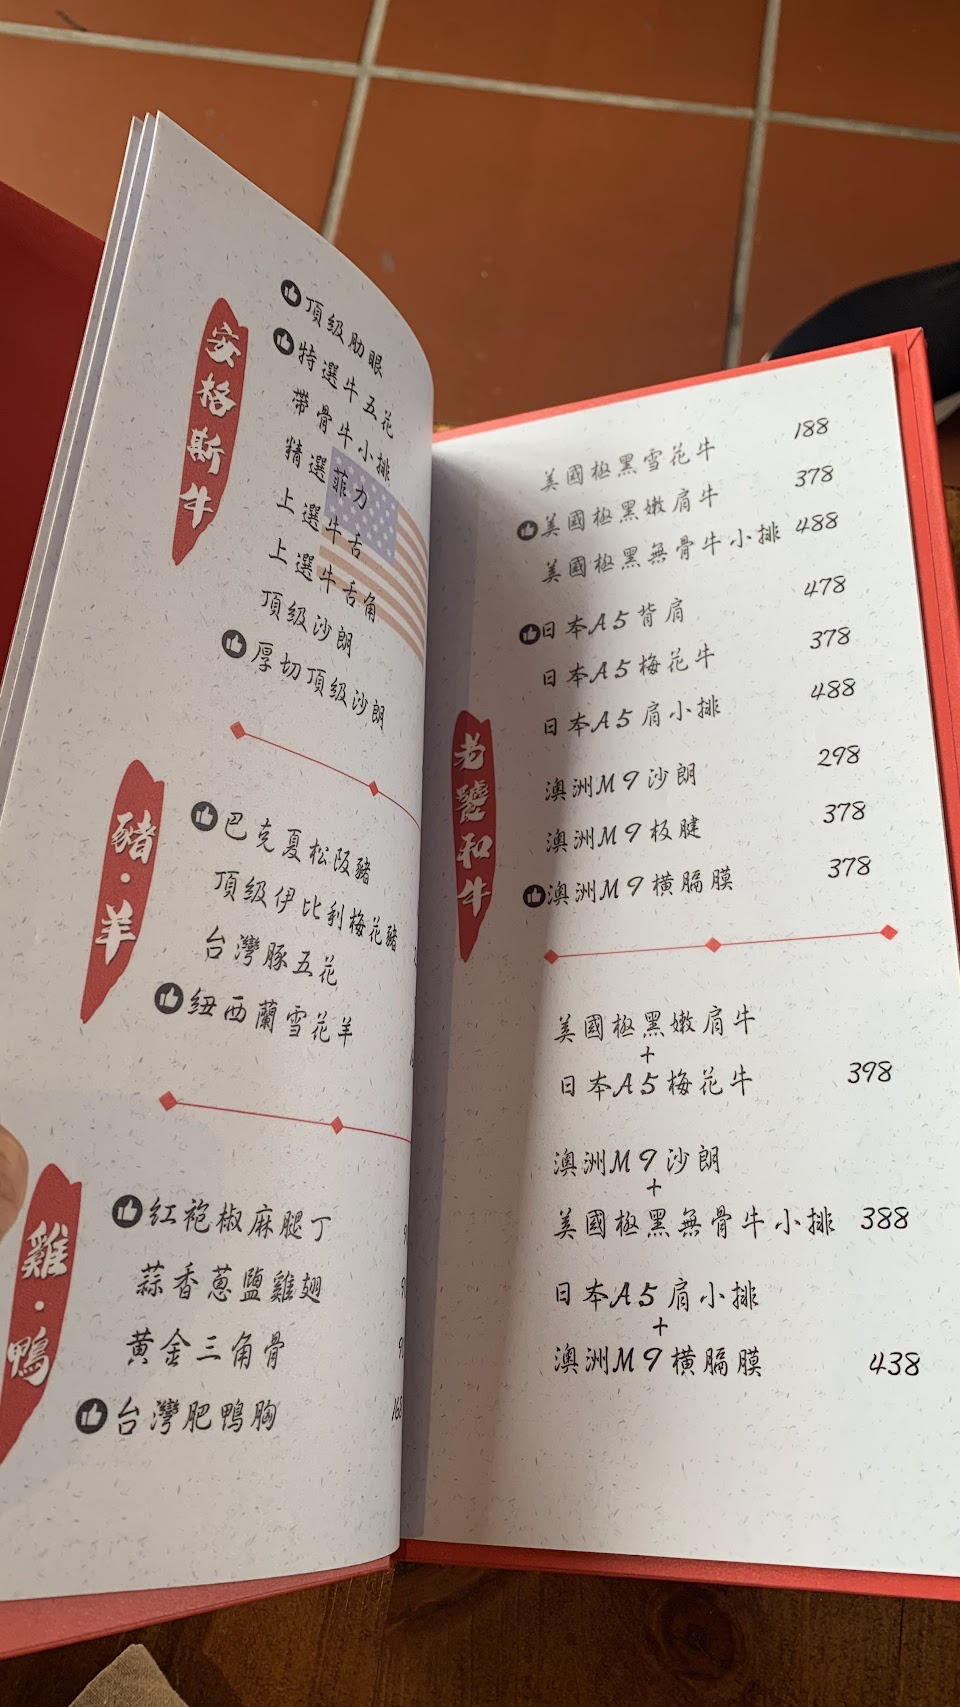 安格斯牛
頂級肋眼
特選牛五花
帶骨牛小排
精選菲力
上選牛舌
上選牛舌角
頂級沙朗
厚切頂級沙朗
豬·羊
巴克夏松阪豬
頂級伊比利梅花豬
台灣豚五花
紐西蘭雪花羊
雞·鴨
紅袍椒麻腿丁
蒜香蔥鹽雞翅
黃金三角骨
台灣肥鴨胸 168
老饕和牛
美國極黑雪花牛 188
美國極黑嫩肩牛 378
美國極黑無骨牛小排 488
日本A5背肩 478
日本A5梅花牛 378
日本A5肩小排 488
澳洲M9沙朗 298
澳洲M9板腱 378
澳洲M9橫膈膜 378
美國極黑嫩肩牛
+
日本A5梅花牛 398
澳洲M9沙朗
+
美國極黑無骨牛小排 388
日本A5肩小排
+
澳洲M9橫膈膜 438